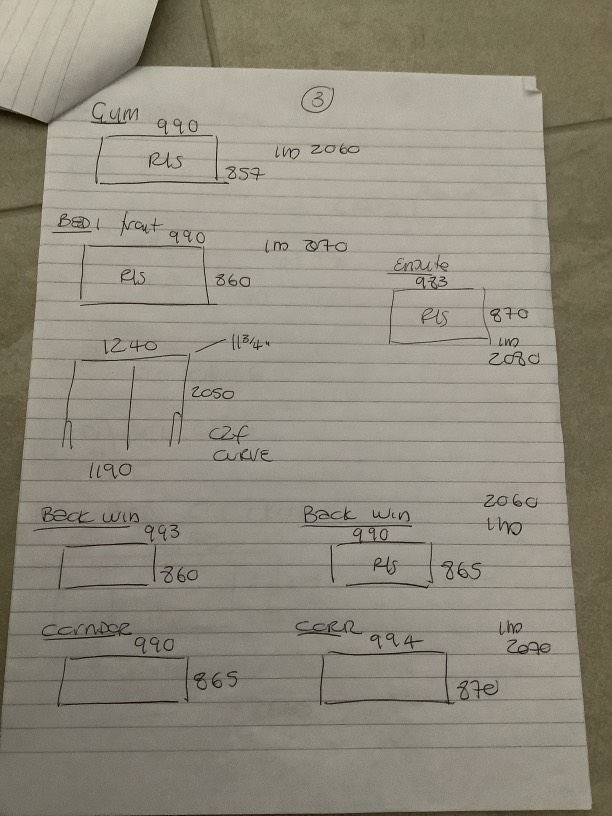 3
Gym
990
Rls
857
lno 2060
BED 1 front
990
lno 2070
Rls
860
Ensuite
983
Rls
870
lno
2080
1240
11 3/4"
2050
C2F
CURVE
1190
Back Win
993
860
Back Win
990
2060
lno
Rls
865
CORRIDOR
990
865
CORR
994
lno
2070
870